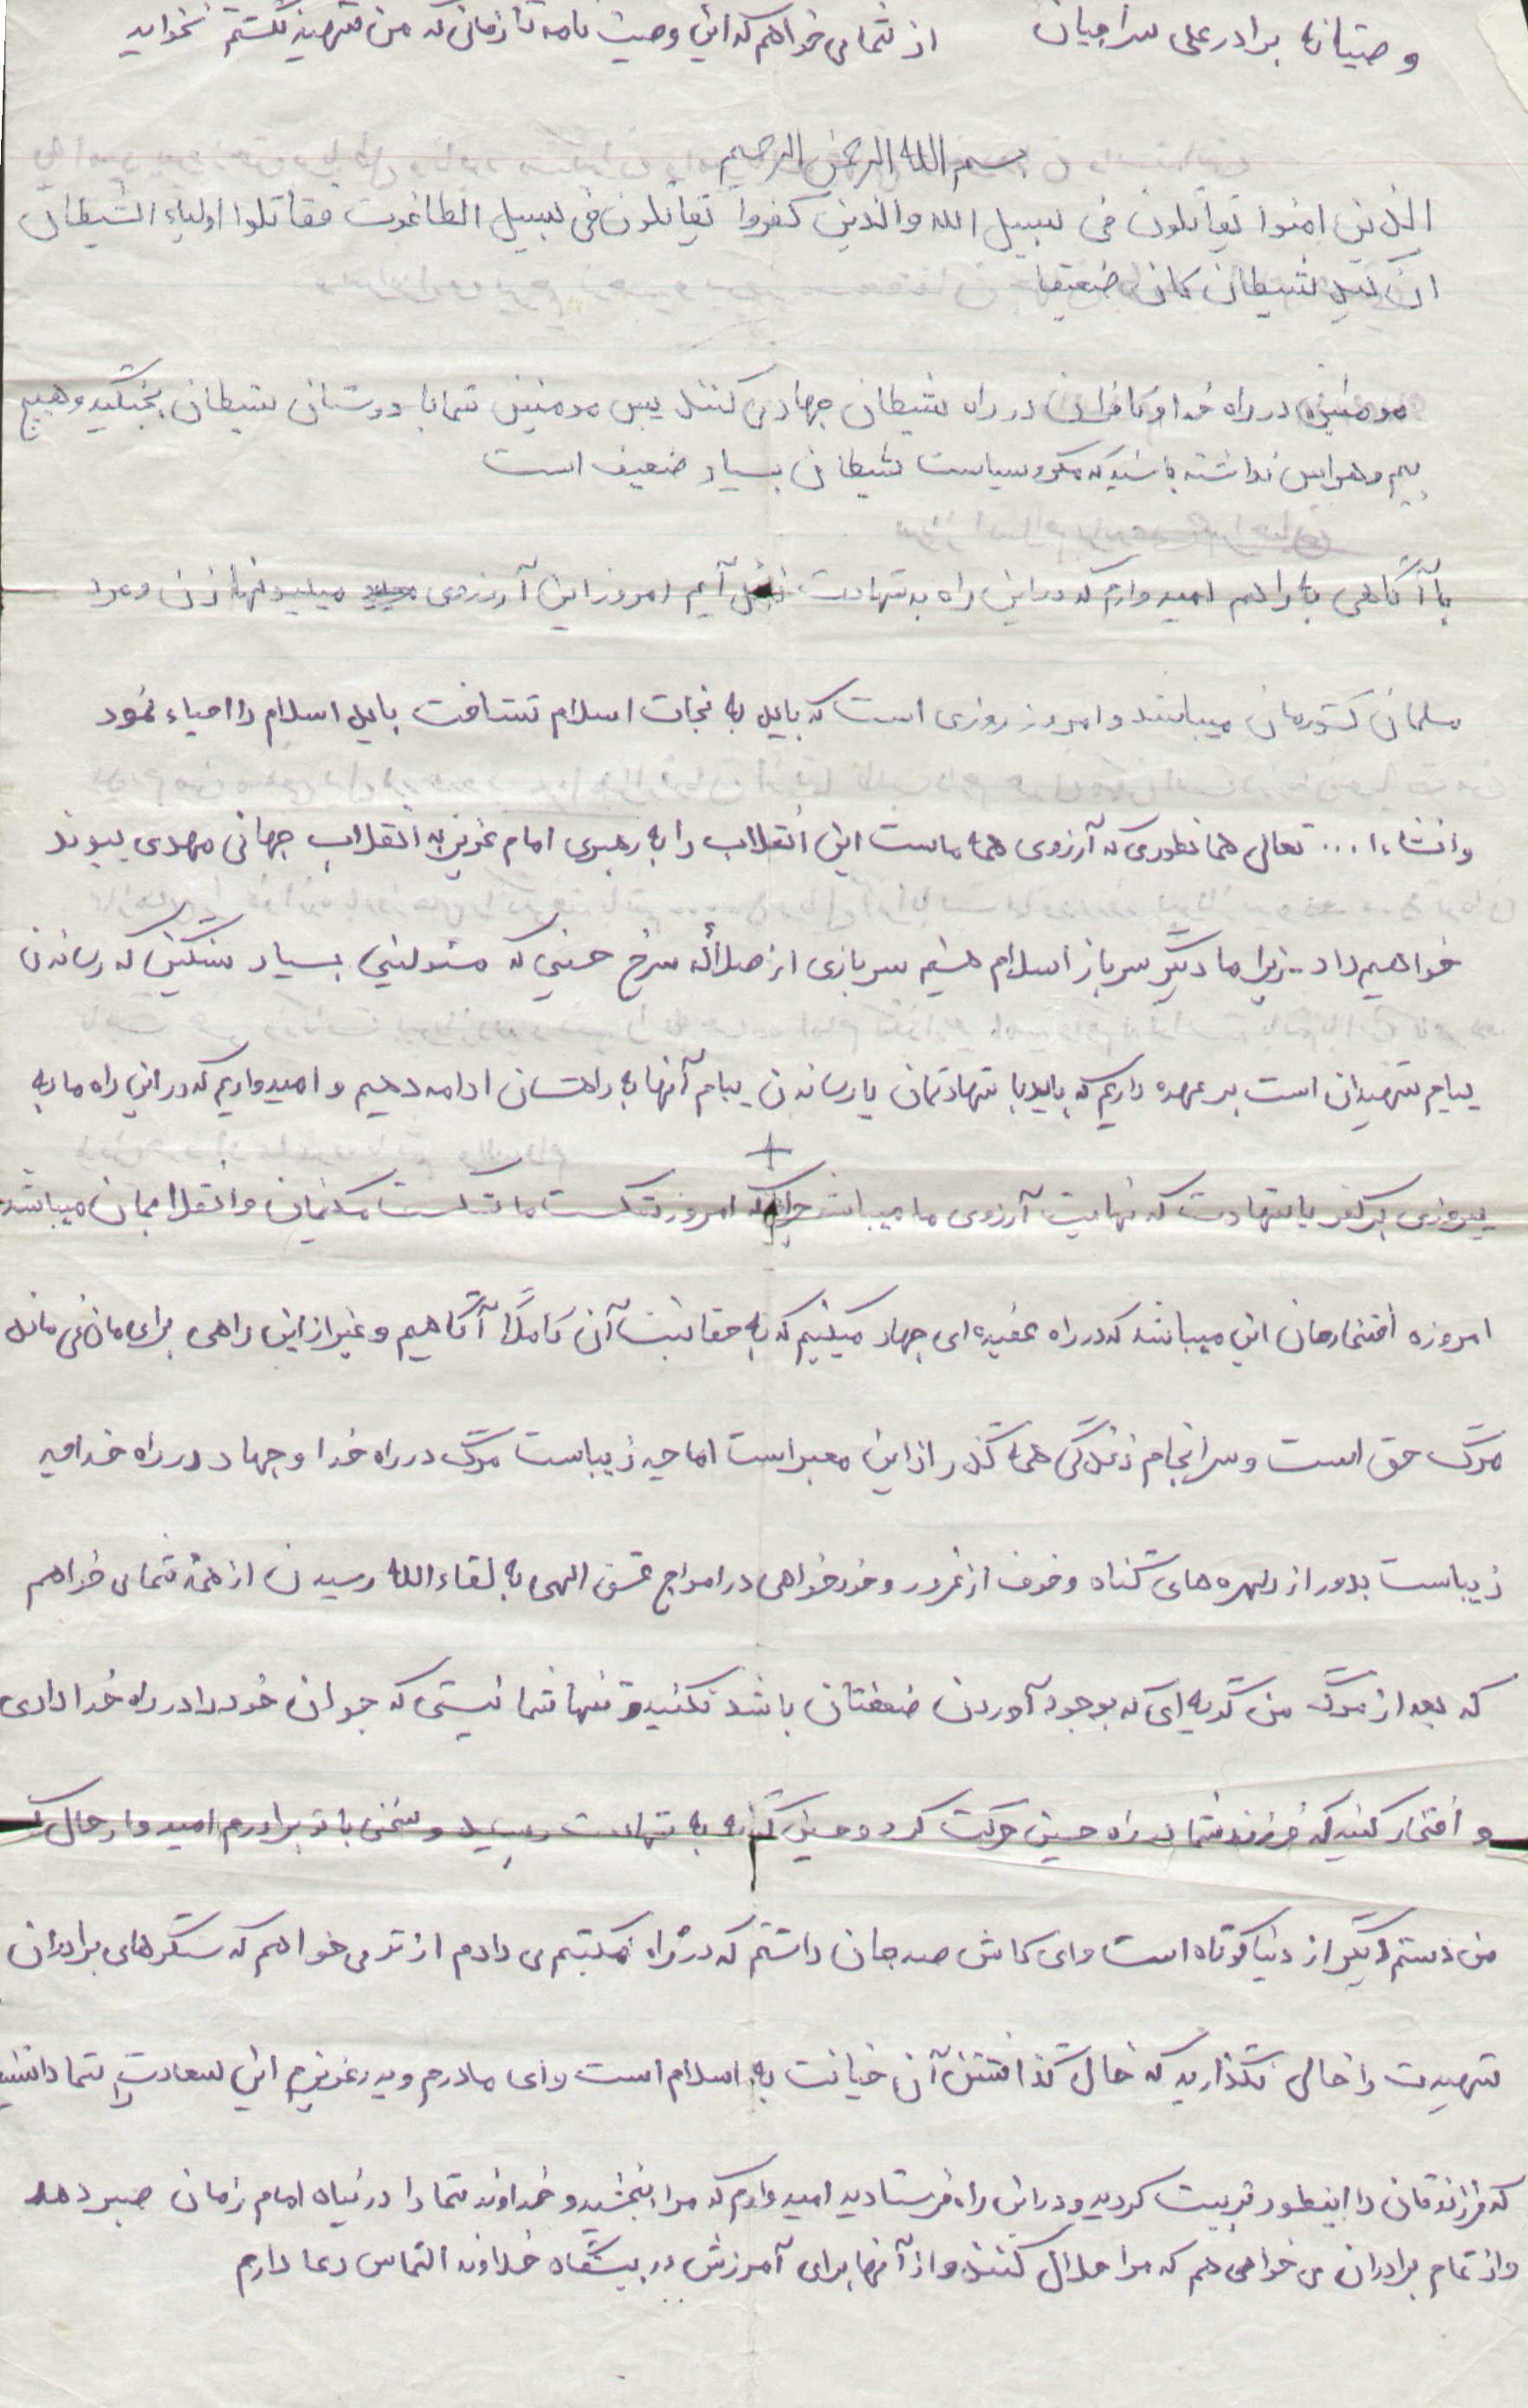 وصیتنامه برادر علی سراجیان از شما می خواهم که این وصیت نامه تا زمانی که من شهید نگشتم نخوانید
بسم الله الرحمن الرحیم
الذین امنوا یقاتلون فی سبیل الله والذین کفروا یقاتلون فی سبیل الطاغوت فقاتلوا اولیاء الشیطان
ان کید شیطان کان ضعیفا
مومنین در راه خدا و کافران در راه شیطان جهاد می کنند پس مومنین شما با دوستان شیطان بجنگید و هیچ
بیم و هراس نداشته باشید که مکر و سیاست شیطان بسیار ضعیف است
با آگاهی راهم امیدوارم که در این راه به شهادت نائل آیم امروز این آرزوی میلیونها زن و مرد
مسلمان کشورمان میباشد و امروز روزی است که باید به نجات اسلام شتافت باید اسلام را احیاء نمود
وانشاءا... تعالی همانطوری که آرزوی همه ماست این انقلاب را به رهبری امام عزیز به انقلاب جهانی مهدی پیوند
خواهیم داد .. زیرا ما دیگر سرباز اسلام هستیم سربازی از سرخ حسینی که مسئولیتی بسیار سنگین که رساندن
پیام شهیدان است بر عهده داریم که باید با شهادتمان یا رساندن پیام آنها به راهشان ادامه دهیم و امیدواریم که در این راه ما به
پیروزی بر کفر یا شهادت که نهایت آرزوی ما میباشد چرا که امروز شکست ما شکست مکتبمان و انقلابمان میباشد
امروزه افتخارمان این میباشد که در راه عقیده ای جهاد میکنیم که به حقانیت آن کاملاً آگاهیم و غیر از این راهی برای مان نمی ماند
مرگ حق است و سرانجام زندگی همه گذر از این معبر است اما چه زیباست مرگ در راه خدا و جهاد در راه خدا چه
زیباست بدور از دلهره های گناه و خوف از غرور و خودخواهی در امواج عشق الهی به لقاءالله رسیدن از همه شما می خواهم
که بعد از مرگ من گریه ای که بوجود آوردن ضعفتان باشد نکنید تنها شما نیستی که جوان خود را در راه خدا دادی
و افتخار کنید که فرزند شما در راه حسین حرکت کرد و حسین گونه به شهادت رسید و سخنی با تو برادرم امیدوار حال که
من دستم دیگر از دنیا کوتاه است و ای کاش صد جان داشتم که در راه مکتبم می دادم از تو می خواهم که سنگرهای برادران
شهیدت را خالی نگذارید که خالی گذاشتن آن خیانت به اسلام است و ای مادرم و پدر عزیزم این سعادت را شما داشتید
که فرزندتان را اینطور تربیت کردید و در این راه فرستادید امیدوارم که مرا ببخشید و خداوند شما را در پناه امام زمان صبر دهد
و از تمام برادران می خواهم که مرا حلال کنند و از آنها برای آمرزش در پیشگاه خداوند التماس دعا دارم